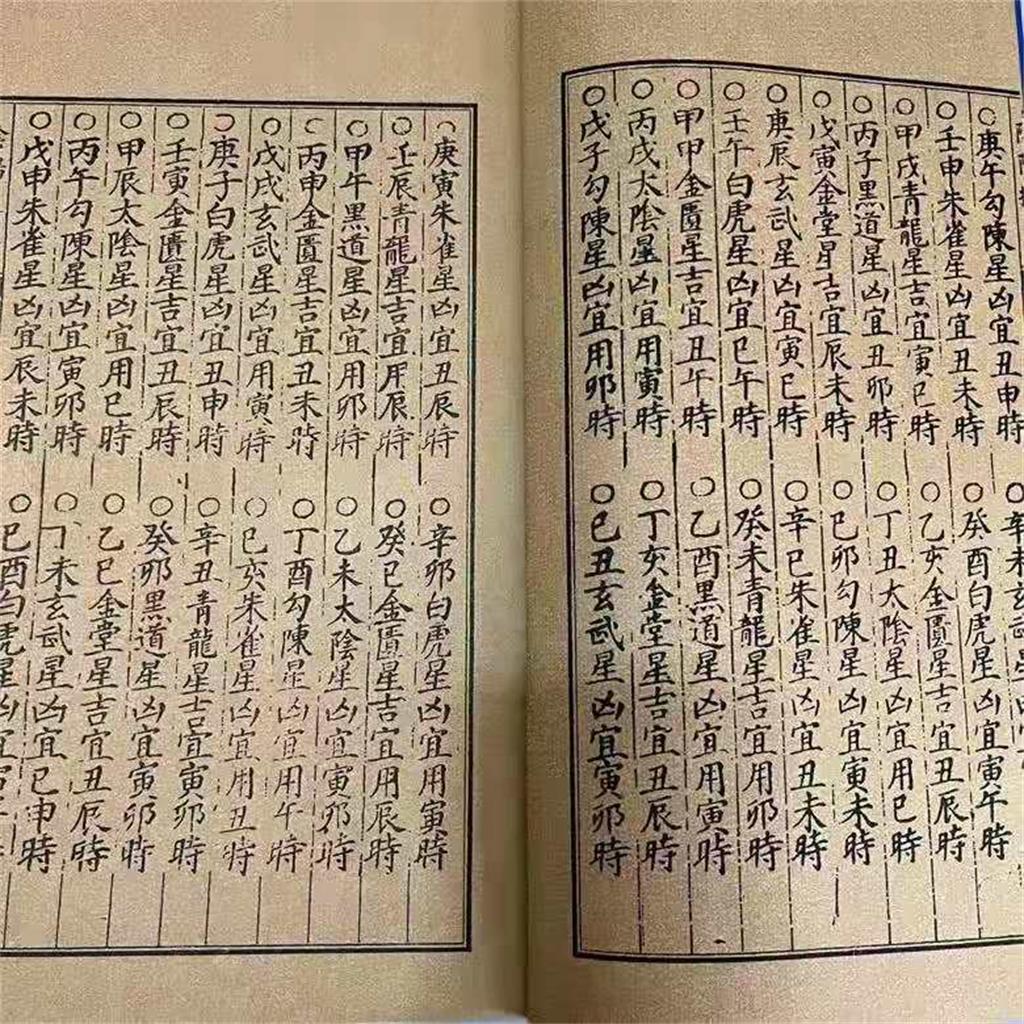 ○庚午勾陳星凶宜丑申時
○辛未玄武星凶宜
○壬申朱雀星凶宜丑未時
○癸酉白虎星凶宜寅午時
○甲戌青龍星吉宜寅巳時
○乙亥金匱星吉宜丑辰時
○丙子黑道星凶宜丑卯時
○丁丑太陰星凶宜用巳時
○戊寅金堂星吉宜辰未時
○己卯勾陳星凶宜寅未時
○庚辰玄武星凶宜寅巳時
○辛巳朱雀星凶宜丑未時
○壬午白虎星凶宜巳午時
○癸未青龍星吉宜用卯時
○甲甲金匱星吉宜丑午時
○乙酉黑道星凶宜用寅時
○丙戌太陰星凶宜用寅時
○丁亥金堂星吉宜丑辰時
○戊子勾陳星凶宜用卯時
○己丑玄武星凶宜寅卯時
○庚寅朱雀星凶宜丑辰時
○辛卯白虎星凶宜用寅時
○壬辰青龍星吉宜用辰時
○癸巳金匱星吉宜用辰時
○甲午黑道星凶宜用卯時
○乙未太陰星凶宜寅卯時
○丙申金匱星吉宜丑未時
○丁酉勾陳星凶宜用午時
○戊戌玄武星凶宜用寅時
○己亥朱雀星凶宜用丑時
○庚子白虎星凶宜丑申時
○辛丑青龍星吉宜寅卯時
○壬寅金匱星吉宜丑辰時
○癸卯黑道星凶宜寅卯時
○甲辰太陰星凶宜用巳時
○乙巳金堂星吉宜丑辰時
○丙午勾陳星凶宜寅卯時
○丁未玄武星凶宜巳申時
○戊申朱雀星凶宜辰未時
○己酉白虎星凶宜寅